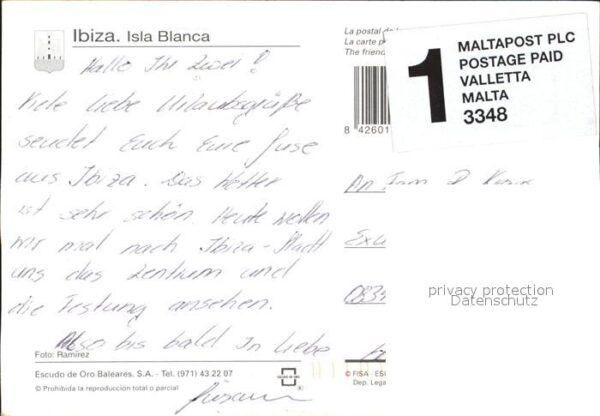 Ibiza. Isla Blanca
La postal de
La carte p
The friend
Hallo Ihr Zwei!
Viele liebe Urlaubsgrüße
sendet Euch Eure Suse
aus Ibiza. Das Wetter
ist sehr schön. Heute wollen
wir mal nach Ibiza-Stadt
uns das Zentrum und
die Festung ansehen.
Also bis bald In Liebe
8 42601
1
MALTAPOST PLC
POSTAGE PAID
VALLETTA
MALTA
3348
An
privacy protection
Datenschutz
Foto: Ramirez
Escudo de Oro Baleares. S.A. - Tel. (971) 43 22 07
© Prohibida la reproducción total o parcial
ESCUDO DE ORO
© FISA - ESC
Dep. Lega